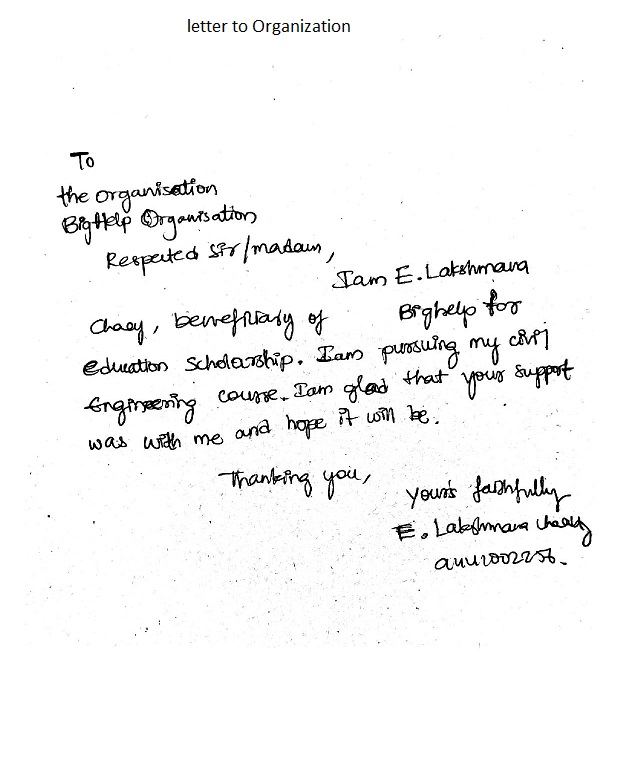 letter to Organization
To
the organisation
BigHelp Organisation
Respected Sir/madam,
Iam E. Lakshmana
Chary, beneficiary of Bighelp for
education Scholarship. Iam pursuing my civil
Engineering course. Iam glad that your support
was with me and hope it will be.
Thanking you,
yours faithfully
E. Lakshmana Chary